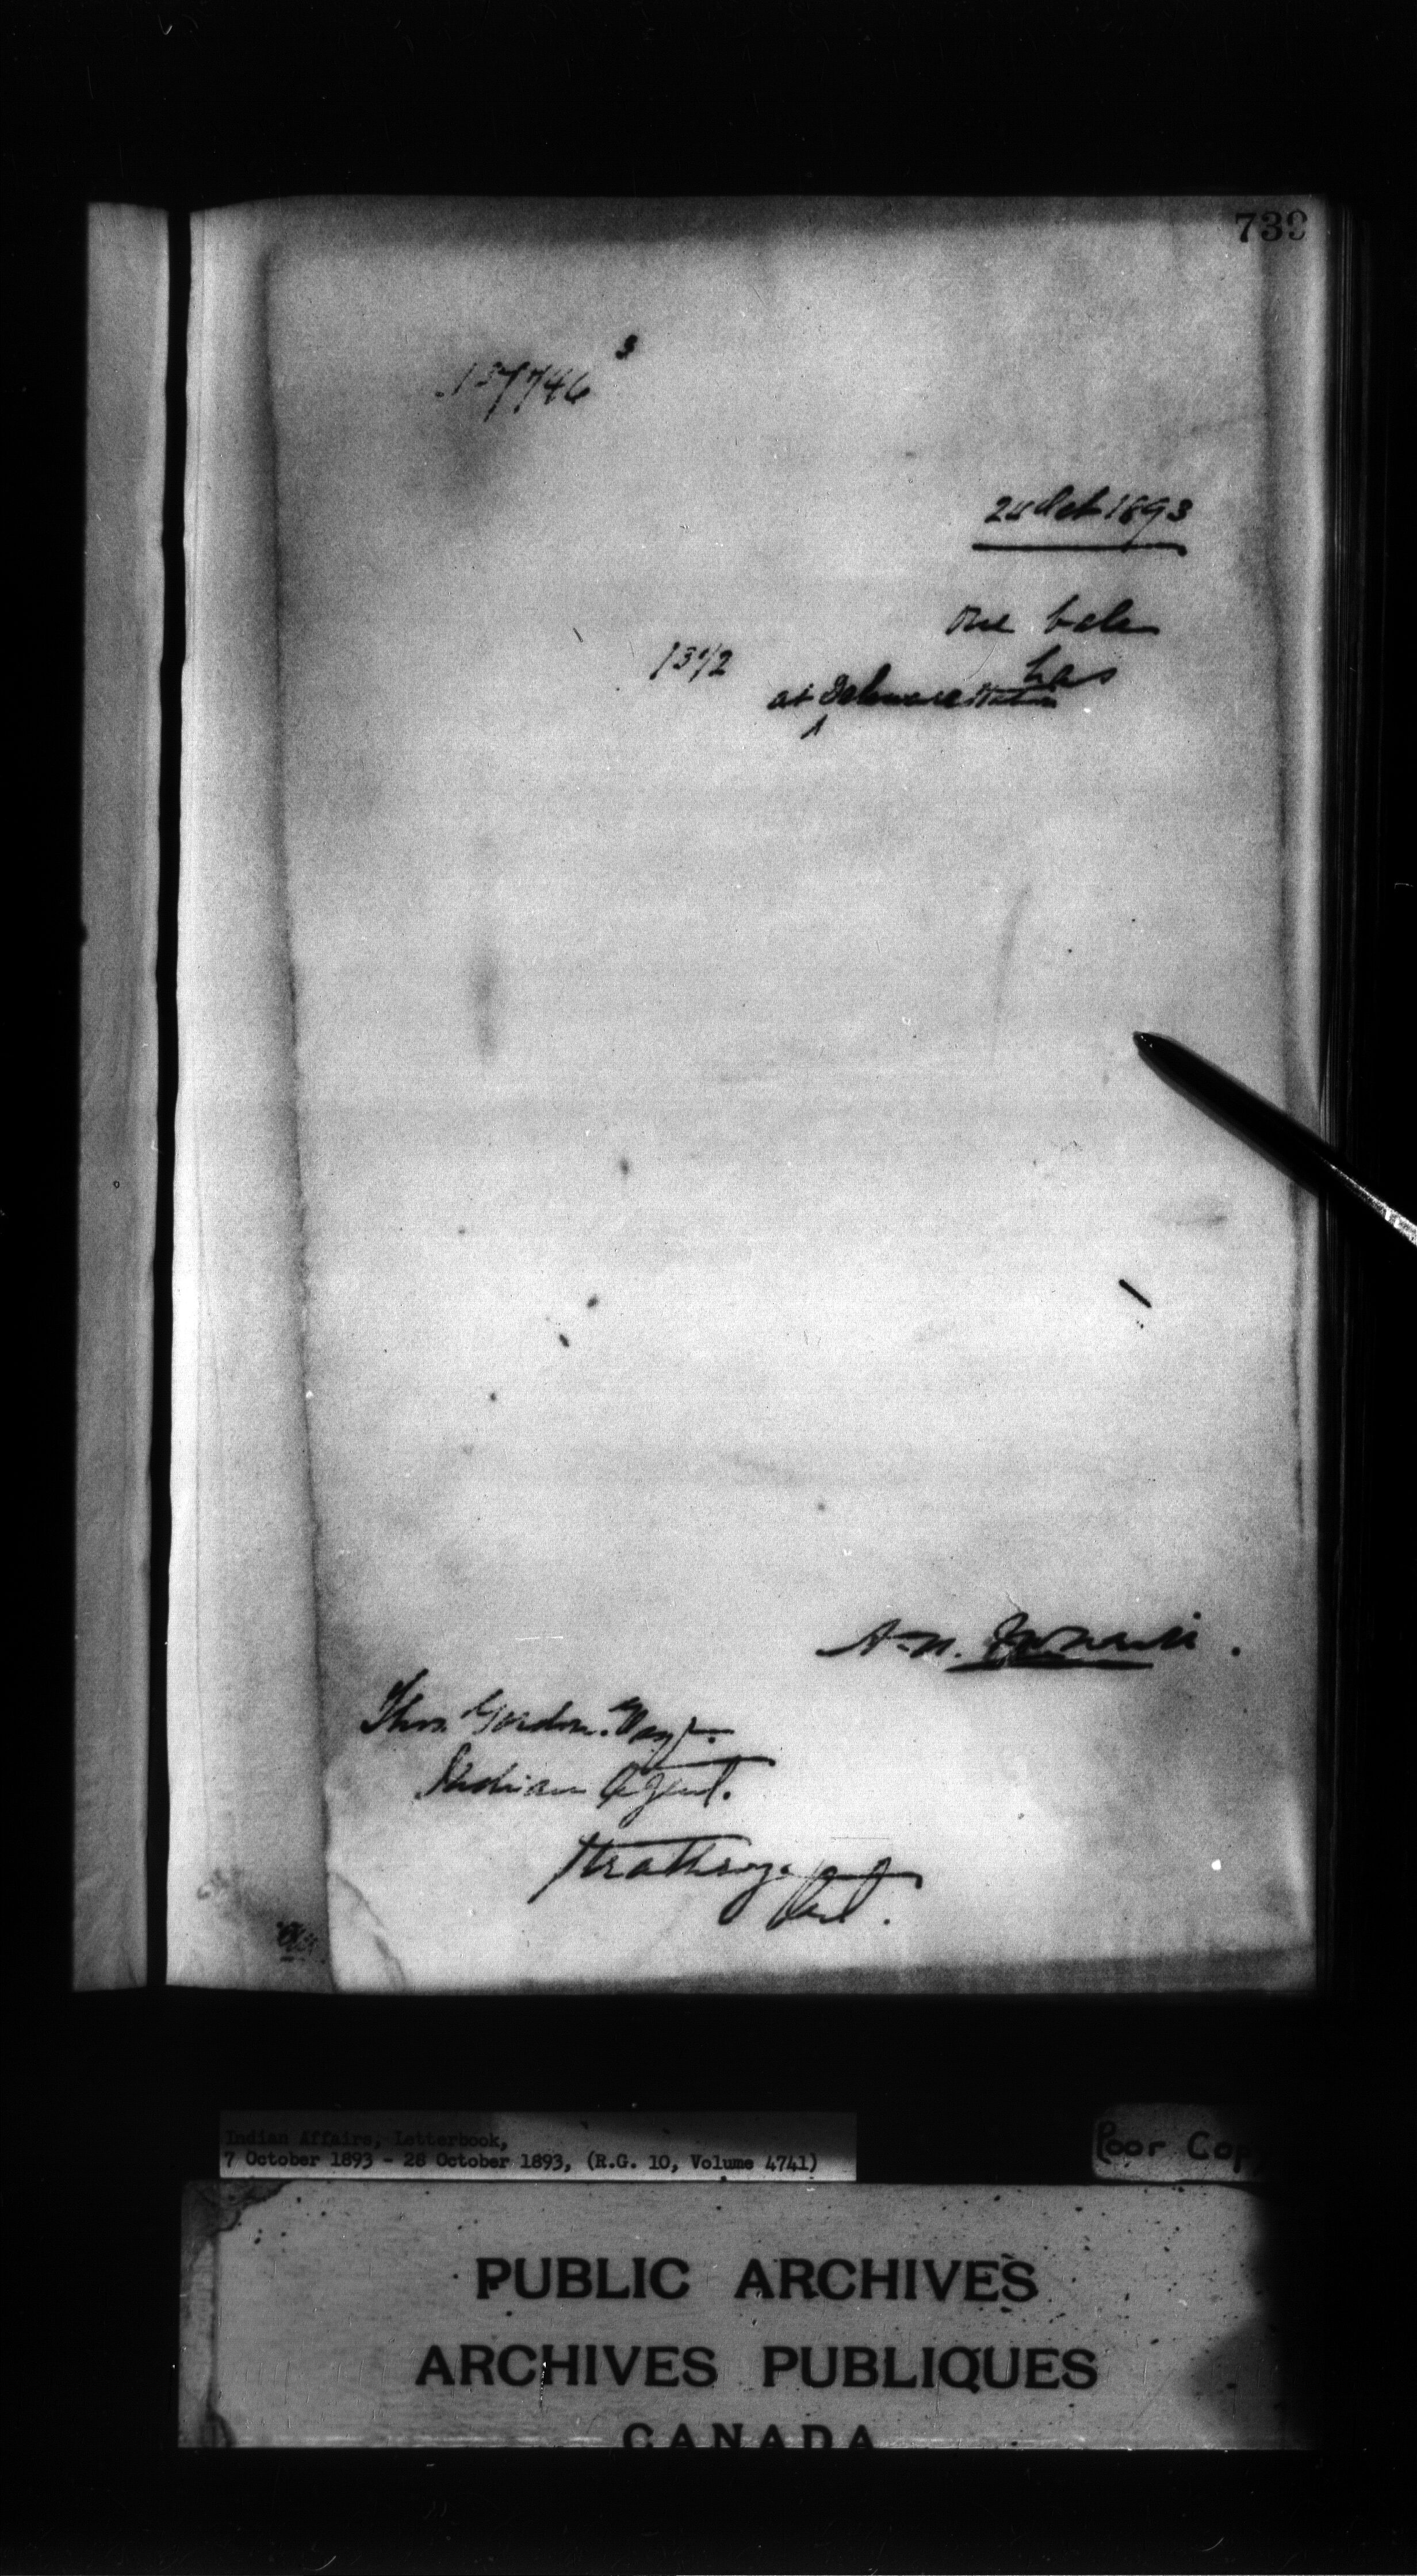 739
157746 3
24 Oct 1893
One bale
has
1342
at Delaware Station
A. N.
Thos. Gordon. Esqr.
Indian Agent.
Strathroy.
Ont.
Indian Affairs, Letterbook,
7 October 1893 - 28 October 1893, (R.G. 10, Volume 4741)
Poor Cop
PUBLIC ARCHIVES
ARCHIVES PUBLIQUES
CANADA